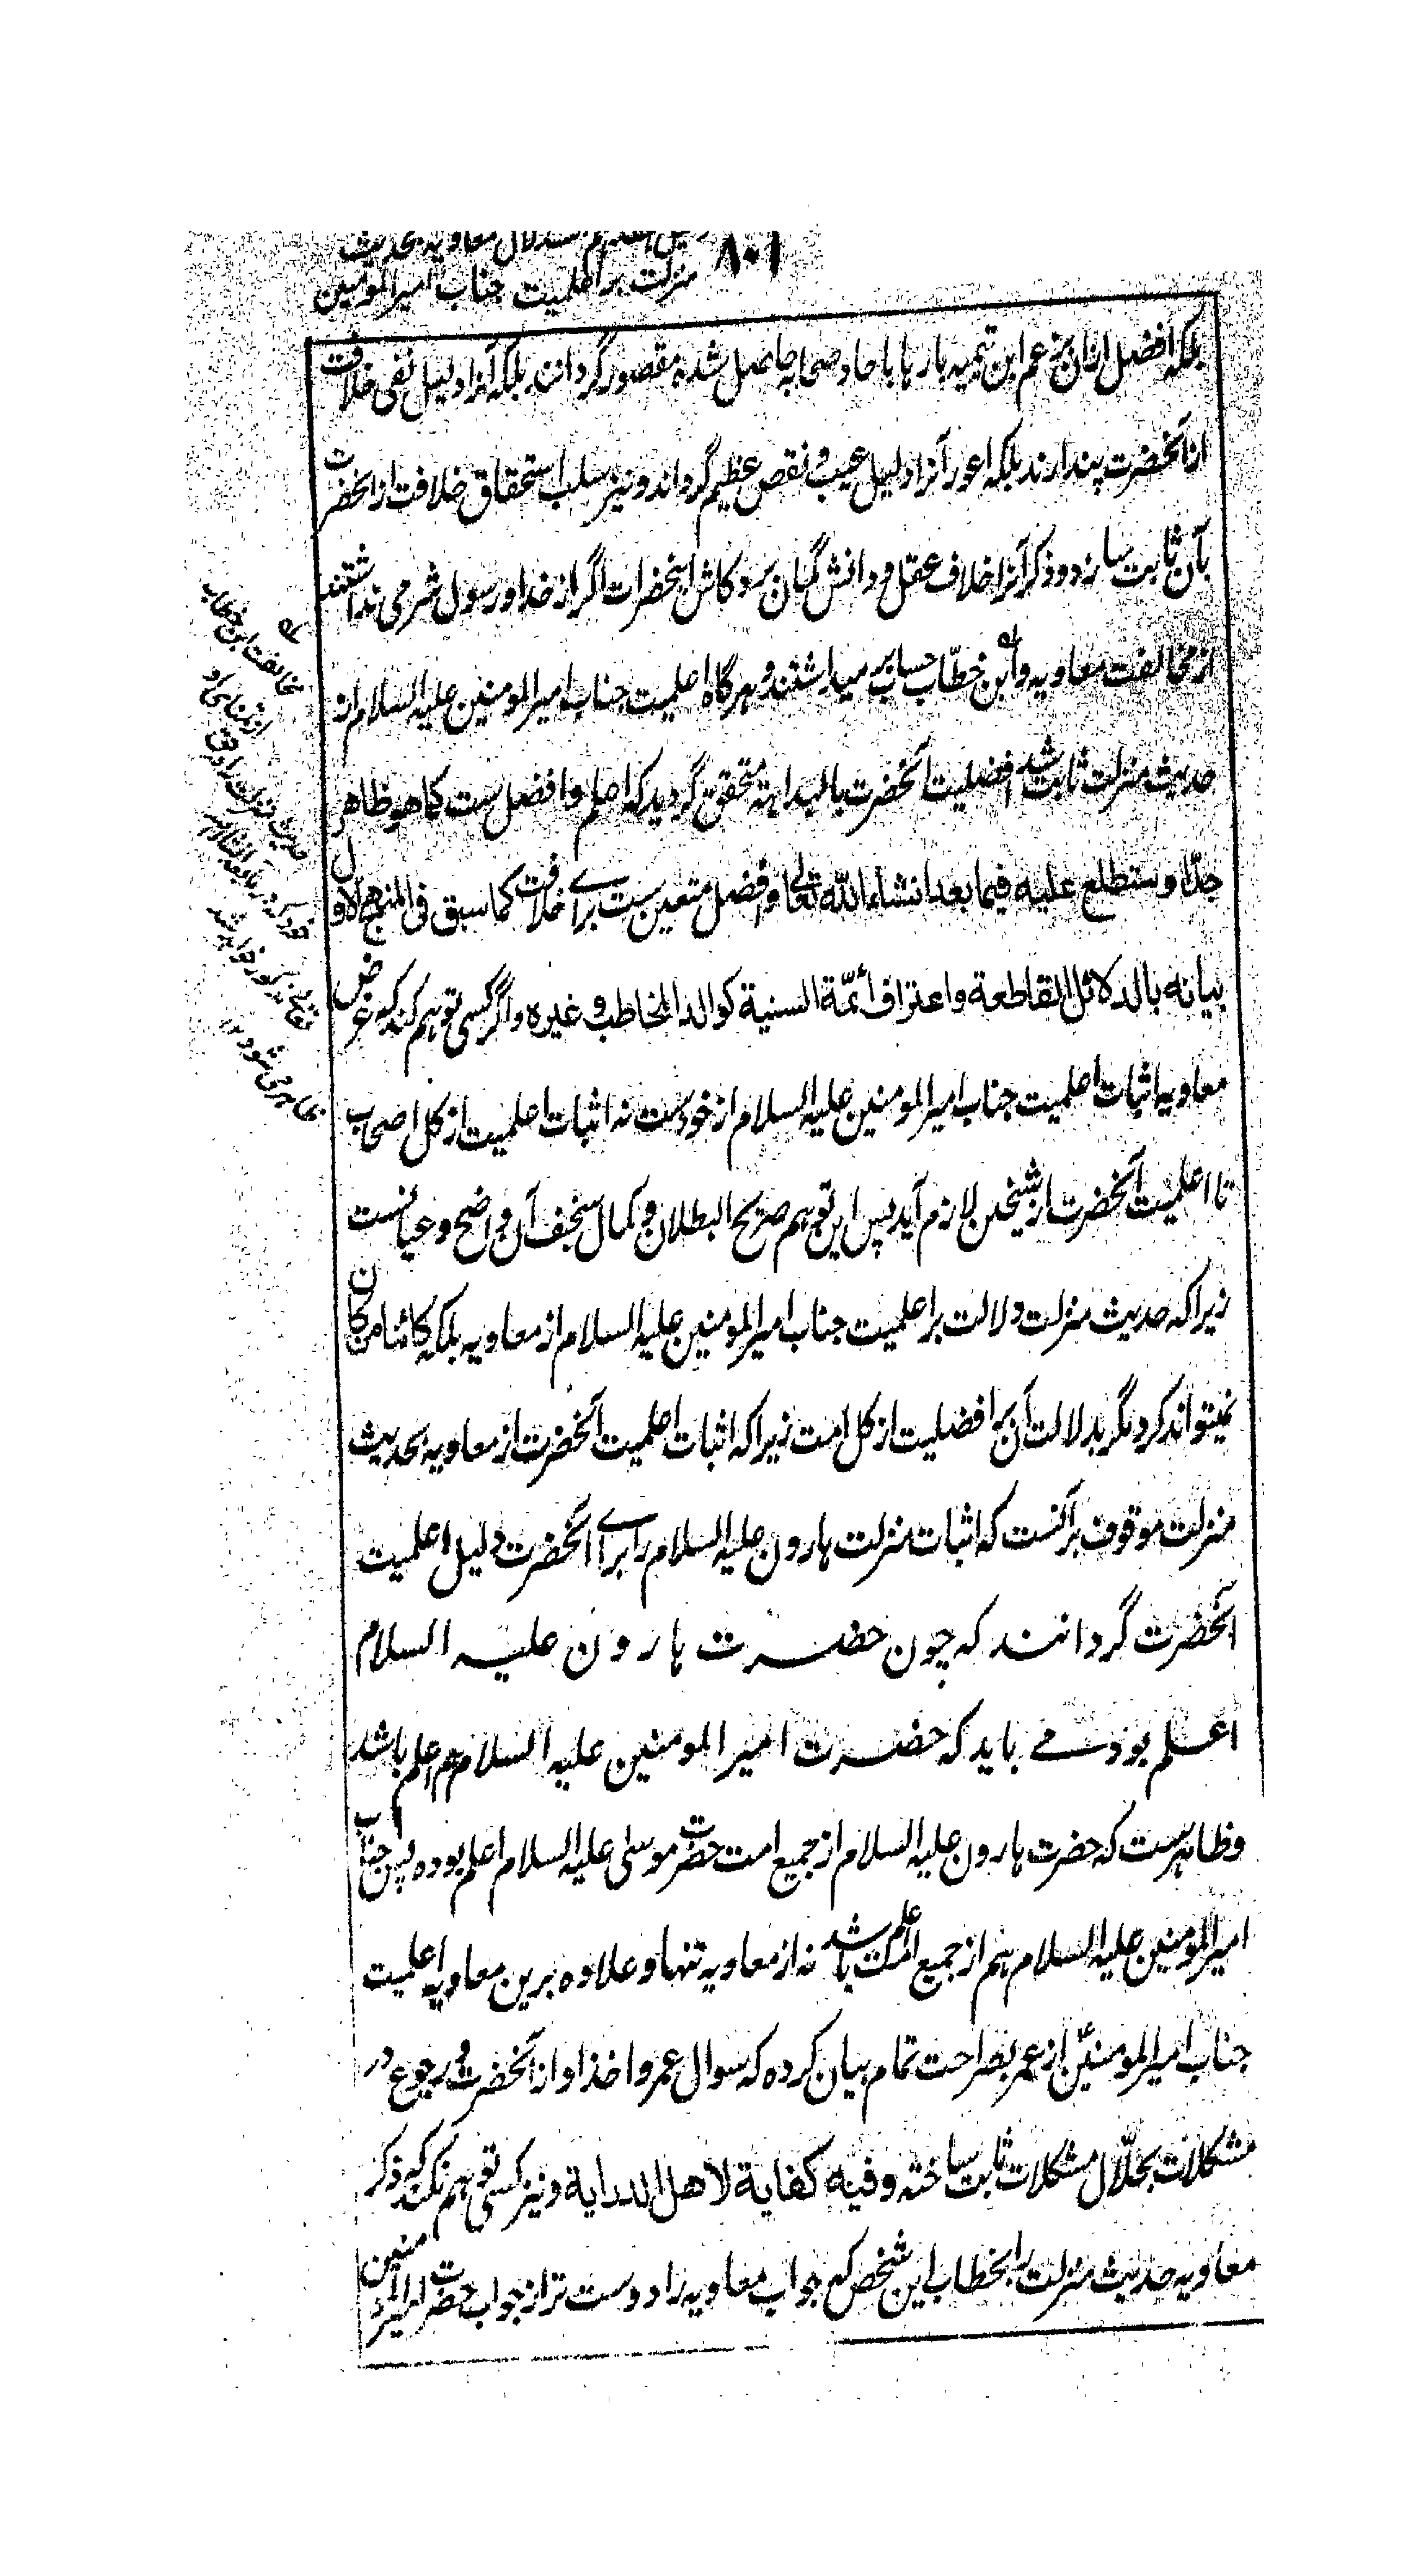 ۸۰۱
استدلال معاویه بحدیث
منزلت بر اعلمیت جناب امیرالمومنین
بلکه افضل ازان بزعم ابن تیمیه بارها باحاد صحابه حاصل شده مقصور گردانند بلکه آنرا دلیل نفی خلافت
ازآنحضرت پندارند بلکه اعور آنرا دلیل عیب و نقص عظیم گرداند و نیز سلب استحقاق خلافت ازآنحضرت
بآن ثابت سازد و ذکر آنرا خلاف عقل و دانش گمان برد کاش اینحضرات اگر از خدا و رسول شرمی نداشتند
از مخالفت معاویه و ابن خطّاب حسابے برمیداشتند و هرگاه اعلمیت جناب امیرالمومنین علیه السلام از
حدیث منزلت ثابت شد افضلیت آنحضرت بالبداهة متحقق گردید که اعلم و افضل ست کما هو ظاهر
جدّا و ستطلع علیه فیما بعد انشاء الله تعالی و افضل متعین ست برای خلافت کما سبق فی المنهج الاول
بیانه بالدلائل القاطعة و اعتراف أئمّة السنیة کوالد المخاطب و غیره و اگر کسی توهم کند که غرض
معاویه اثبات اعلمیت جناب امیرالمومنین علیه السلام از خودست نه اثبات اعلمیت از کل اصحاب
تا اعلمیت آنحضرت از شیخین لازم آید پس این توهم صریح البطلان و کمال سخف آن واضح و عیانست
زیراکه حدیث منزلت دلالت بر اعلمیت جناب امیرالمومنین علیه السلام از معاویه بلکه کائنا من کان
نمیتواند کرد مگر بدلالت آن بر افضلیت از کل امت زیراکه اثبات اعلمیت آنحضرت از معاویه بحدیث
منزلت موقوف برآنست که اثبات منزلت هارون علیه السلام را برای آنحضرت دلیل اعلمیت
آنحضرت گردانند که چون حضرت هارون علیه السلام
اعلم بود مے باید که حضرت امیر المومنین علیه السلام هم اعلم باشد
و ظاهرست که حضرت هارون علیه السلام از جمیع امت حضرت موسی علیه السلام اعلم بوده پس جناب
امیرالمومنین علیه السلام هم از جمیع امت اعلم باشد نه از معاویه تنها و علاوه برین معاویه اعلمیت
جناب امیرالمومنینؑ از عمر بصراحت تمام بیان کرده که سوال عمر و اخذ او ازآنحضرت و رجوع در
مشکلات بحلّال مشکلات ثابت ساخته و فیه کفایة لاهل الدرایة و نیز کسی توهم نکند که ذکر
معاویه حدیث منزلت را بخطاب این شخص که جواب معاویه را دوست تر از جواب حضرت امیرالمومنین
مخالفت ابن خطاب
حدیث منزلت را
ظاهر می شود